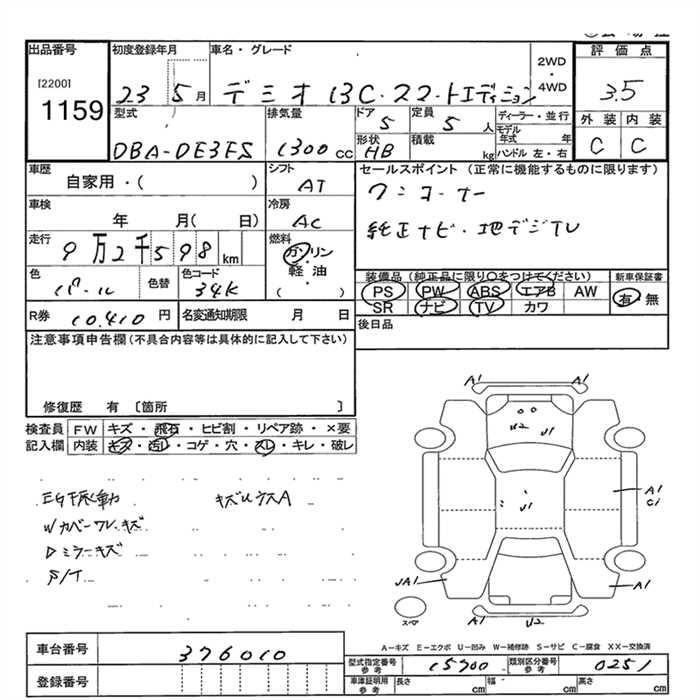 出品番号
[2200]
1159
初度登録年月
23 5月
車名・グレード
デミオ 13C・スマートエディション
2WD
・
4WD
評価点
3.5
型式
DBA-DE3FS
排気量
1300 cc
ドア
5
定員
5 人
形状
HB
積載
kg
ディーラー・並行
モデル年式 年
ハンドル 左・右
外装 内装
C C
車歴
自家用・( )
シフト
AT
車検
年 月( 日)
冷房
AC
走行
9万2千598 km
燃料
ガソリン
・
軽油
( )
色
パール
色替
色コード
34K
R券 10,410 円
名変通知期限 月 日
セールスポイント(正常に機能するものに限ります)
ワンオーナー
純正ナビ・地デジTV
装備品(純正品に限り○をつけてください)
PS PW ABS エアB AW
SR ナビ TV カワ
新車保証書
有・無
後日品
注意事項申告欄(不具合内容等は具体的に記入して下さい)
修復歴 有〔箇所 〕
検査員記入欄
FW キズ・飛石・ヒビ割・リペア跡・×要
内装 キズ・汚レ・コゲ・穴・スレ・キレ・破レ
キズルウスA
Wカバーワレキズ
Dミラーキズ
S/T
A1 A1
U2 U1
U1
A1
C1
A1
A1
A1 U2
スペア
A―キズ E―エクボ U―凹み W―補修跡 S―サビ C―腐食 XX―交換済
車台番号 376010
登録番号
型式指定番号
参考
15700
類別区分番号
参考
0251
車庫証明用
参考
長さ cm 幅 cm 高さ cm